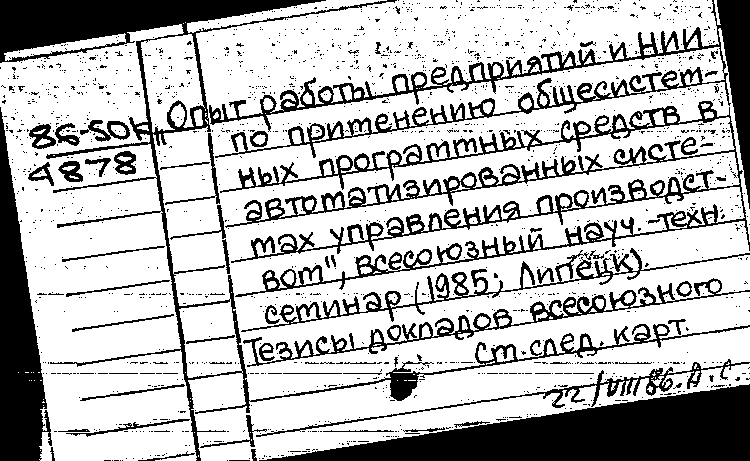 86-50К
4878
„Опыт работы предприятий и НИИ
по применению общесистем-
ных программных средств в
автоматизированных систе-
мах управления производст-
вом", всесоюзный науч.-техн.
семинар (1985; Липецк).
Тезисы докладов всесоюзного
См. след. карт.
22/VIII 86. А.С.